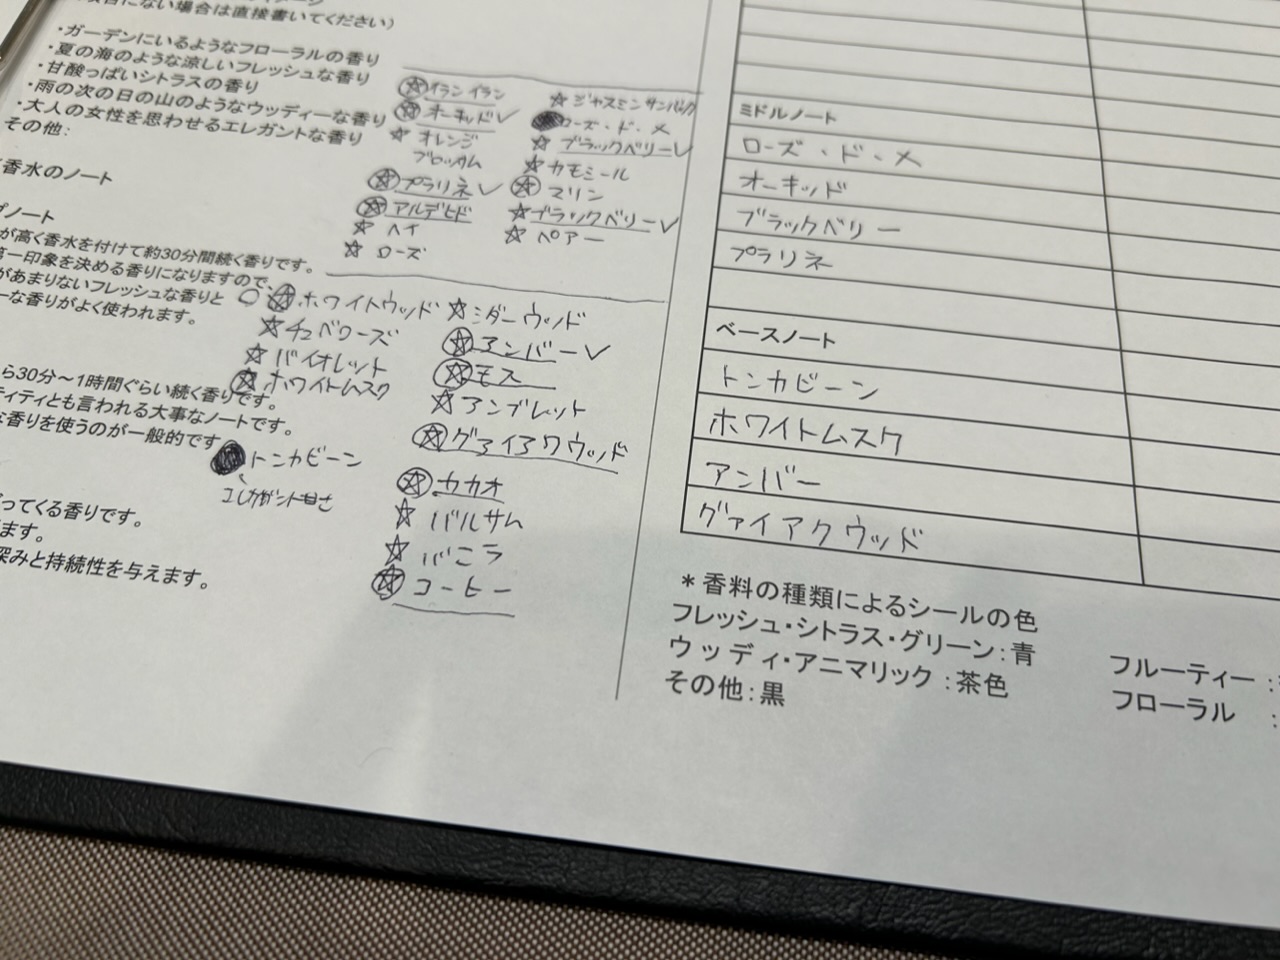 にない場合は直接書いてください)
・ガーデンにいるようなフローラルの香り
・夏の海のような涼しいフレッシュな香り
・甘酸っぱいシトラスの香り
・雨の次の日の山のようなウッディーな香り
・大人の女性を思わせるエレガントな香り
その他:
香水のノート
プノート
が高く香水を付けて約30分間続く香りです。
第一印象を決める香りになりますので、
があまりないフレッシュな香りと
ーな香りがよく使われます。
ら30分～1時間ぐらい続く香りです。
ティティとも言われる大事なノートです。
な香りを使うのが一般的です
ってくる香りです。
ます。
深みと持続性を与えます。
☆イランイラン
☆オーキッド✓
☆オレンジ
ブロッサム
☆プラリネ✓
☆アルデヒド
☆ヘイ
☆ローズ
☆ジャスミンサンバック
ローズ・ド・メ
☆ブラックベリー✓
☆カモミール
☆マリン
☆ブラックベリー✓
☆ペアー
○☆ホワイトウッド
☆チュベローズ
☆バイオレット
☆ホワイトムスク
トンカビーン
エレガント甘さ
☆シダーウッド
☆アンバー✓
☆モス
☆アンブレット
☆グァイアクウッド
☆カカオ
☆バルサム
☆バニラ
☆コーヒー
ミドルノート
ローズ・ド・メ
オーキッド
ブラックベリー
プラリネ
ベースノート
トンカビーン
ホワイトムスク
アンバー
グァイアクウッド
*香料の種類によるシールの色
フレッシュ・シトラス・グリーン:青
ウッディ・アニマリック:茶色
その他:黒
フルーティー:
フローラル :